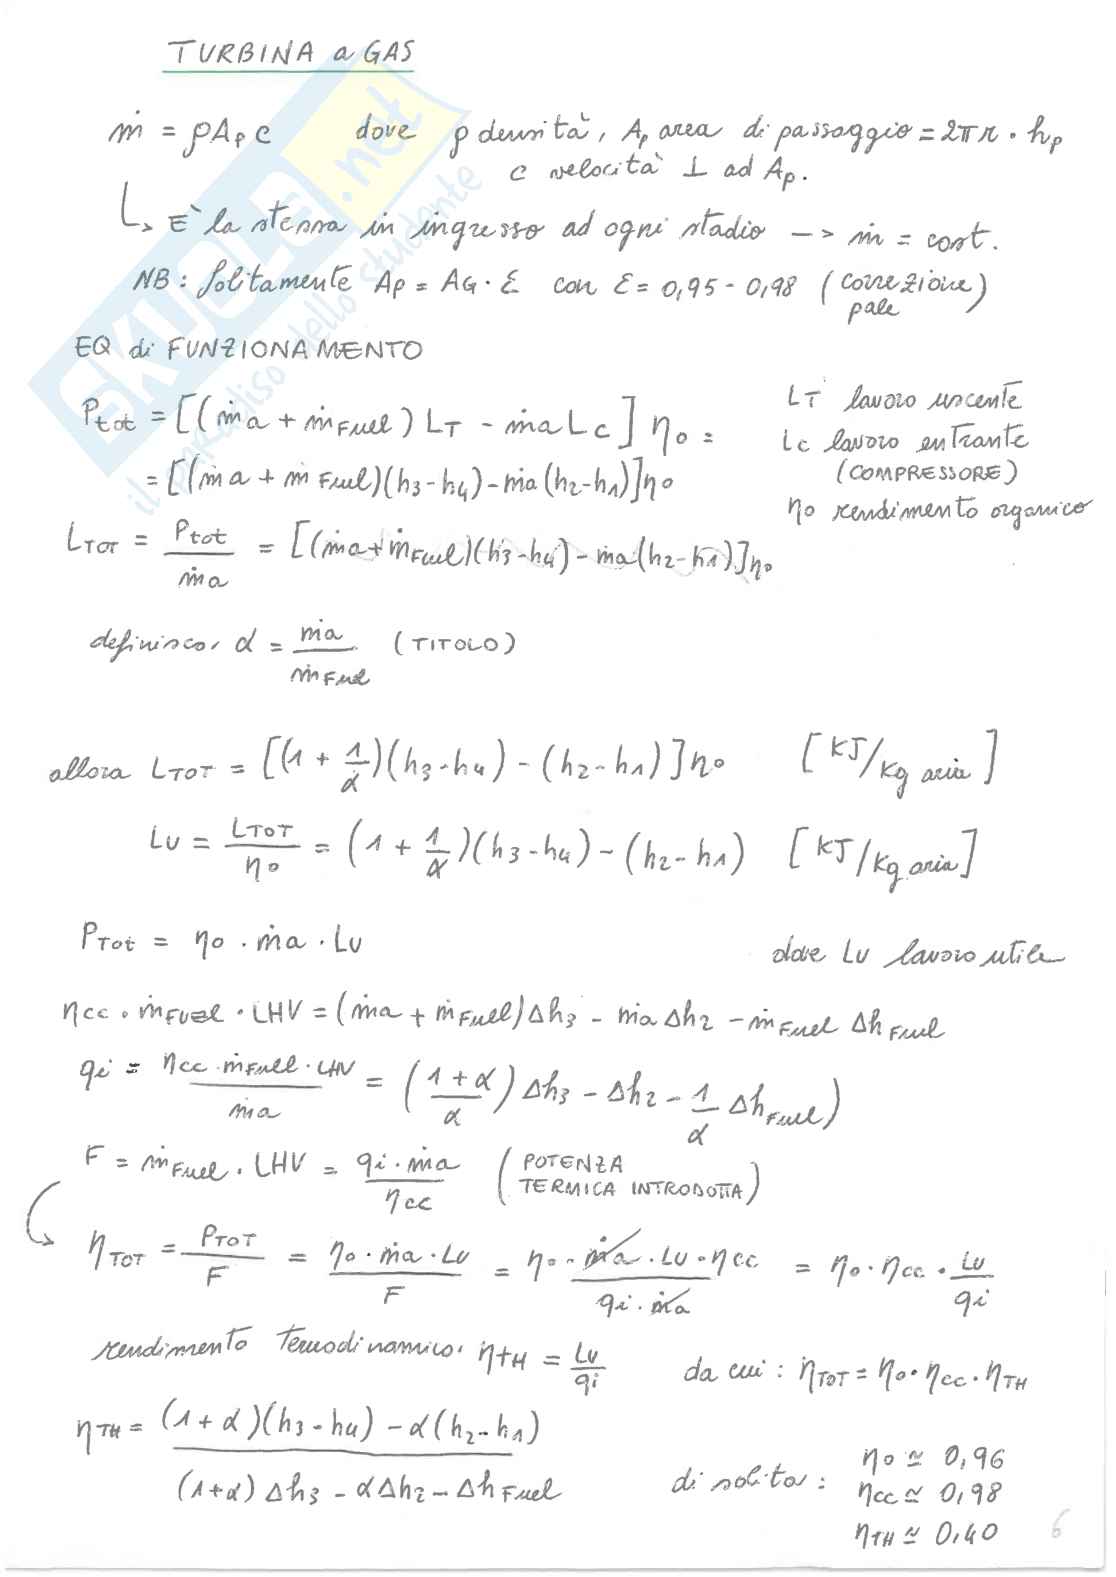 TURBINA a GAS
ṁ = ρ A_P c dove ρ densità, A_P area di passaggio = 2πr · h_P
c velocità ⊥ ad A_P.
↳ E' la stessa in ingresso ad ogni stadio –> ṁ = cost.
NB: Solitamente A_P = A_G · ε con ε = 0,95 - 0,98 (correzione pale)
EQ di FUNZIONAMENTO
P_tot = [(ṁa + ṁ_Fuel) L_T - ṁa L_C] η_o =
L_T lavoro uscente
= [(ṁa + ṁ_Fuel)(h3-h4) - ṁa(h2-h1)] η_o
L_C lavoro entrante
(COMPRESSORE)
η_o rendimento organico
L_TOT = P_tot / ṁa = [(ṁa + ṁ_Fuel)(h3-h4) - ṁa(h2-h1)] η_o
definisco, α = ṁa / ṁ_Fuel (TITOLO)
allora L_TOT = [(1 + 1/α)(h3-h4) - (h2-h1)] η_o [KJ/Kg aria]
Lu = L_TOT / η_o = (1 + 1/α)(h3-h4) - (h2-h1) [KJ/Kg aria]
P_Tot = η_o · ṁa · Lu dove Lu lavoro utile
η_cc · ṁ_Fuel · LHV = (ṁa + ṁ_Fuel) Δh3 - ṁa Δh2 - ṁ_Fuel Δh_Fuel
qi = η_cc · ṁ_Fuel · LHV / ṁa = ((1+α)/α) Δh3 - Δh2 - 1/α Δh_Fuel)
F = ṁ_Fuel · LHV = qi · ṁa / η_cc (POTENZA TERMICA INTRODOTTA)
η_TOT = P_TOT / F = η_o · ṁa · Lu / F = η_o · ṁa · Lu · η_cc / qi · ṁa = η_o · η_cc · Lu / qi
rendimento termodinamico, η_tH = Lu / qi da cui : η_TOT = η_o · η_cc · η_TH
η_TH = (1+α)(h3-h4) - α(h2-h1) / (1+α) Δh3 - αΔh2 - Δh_Fuel
di solito : η_o ≃ 0,96
η_cc ≃ 0,98
η_TH ≃ 0,40
6
SKUOLA.net
il paradiso dello studente